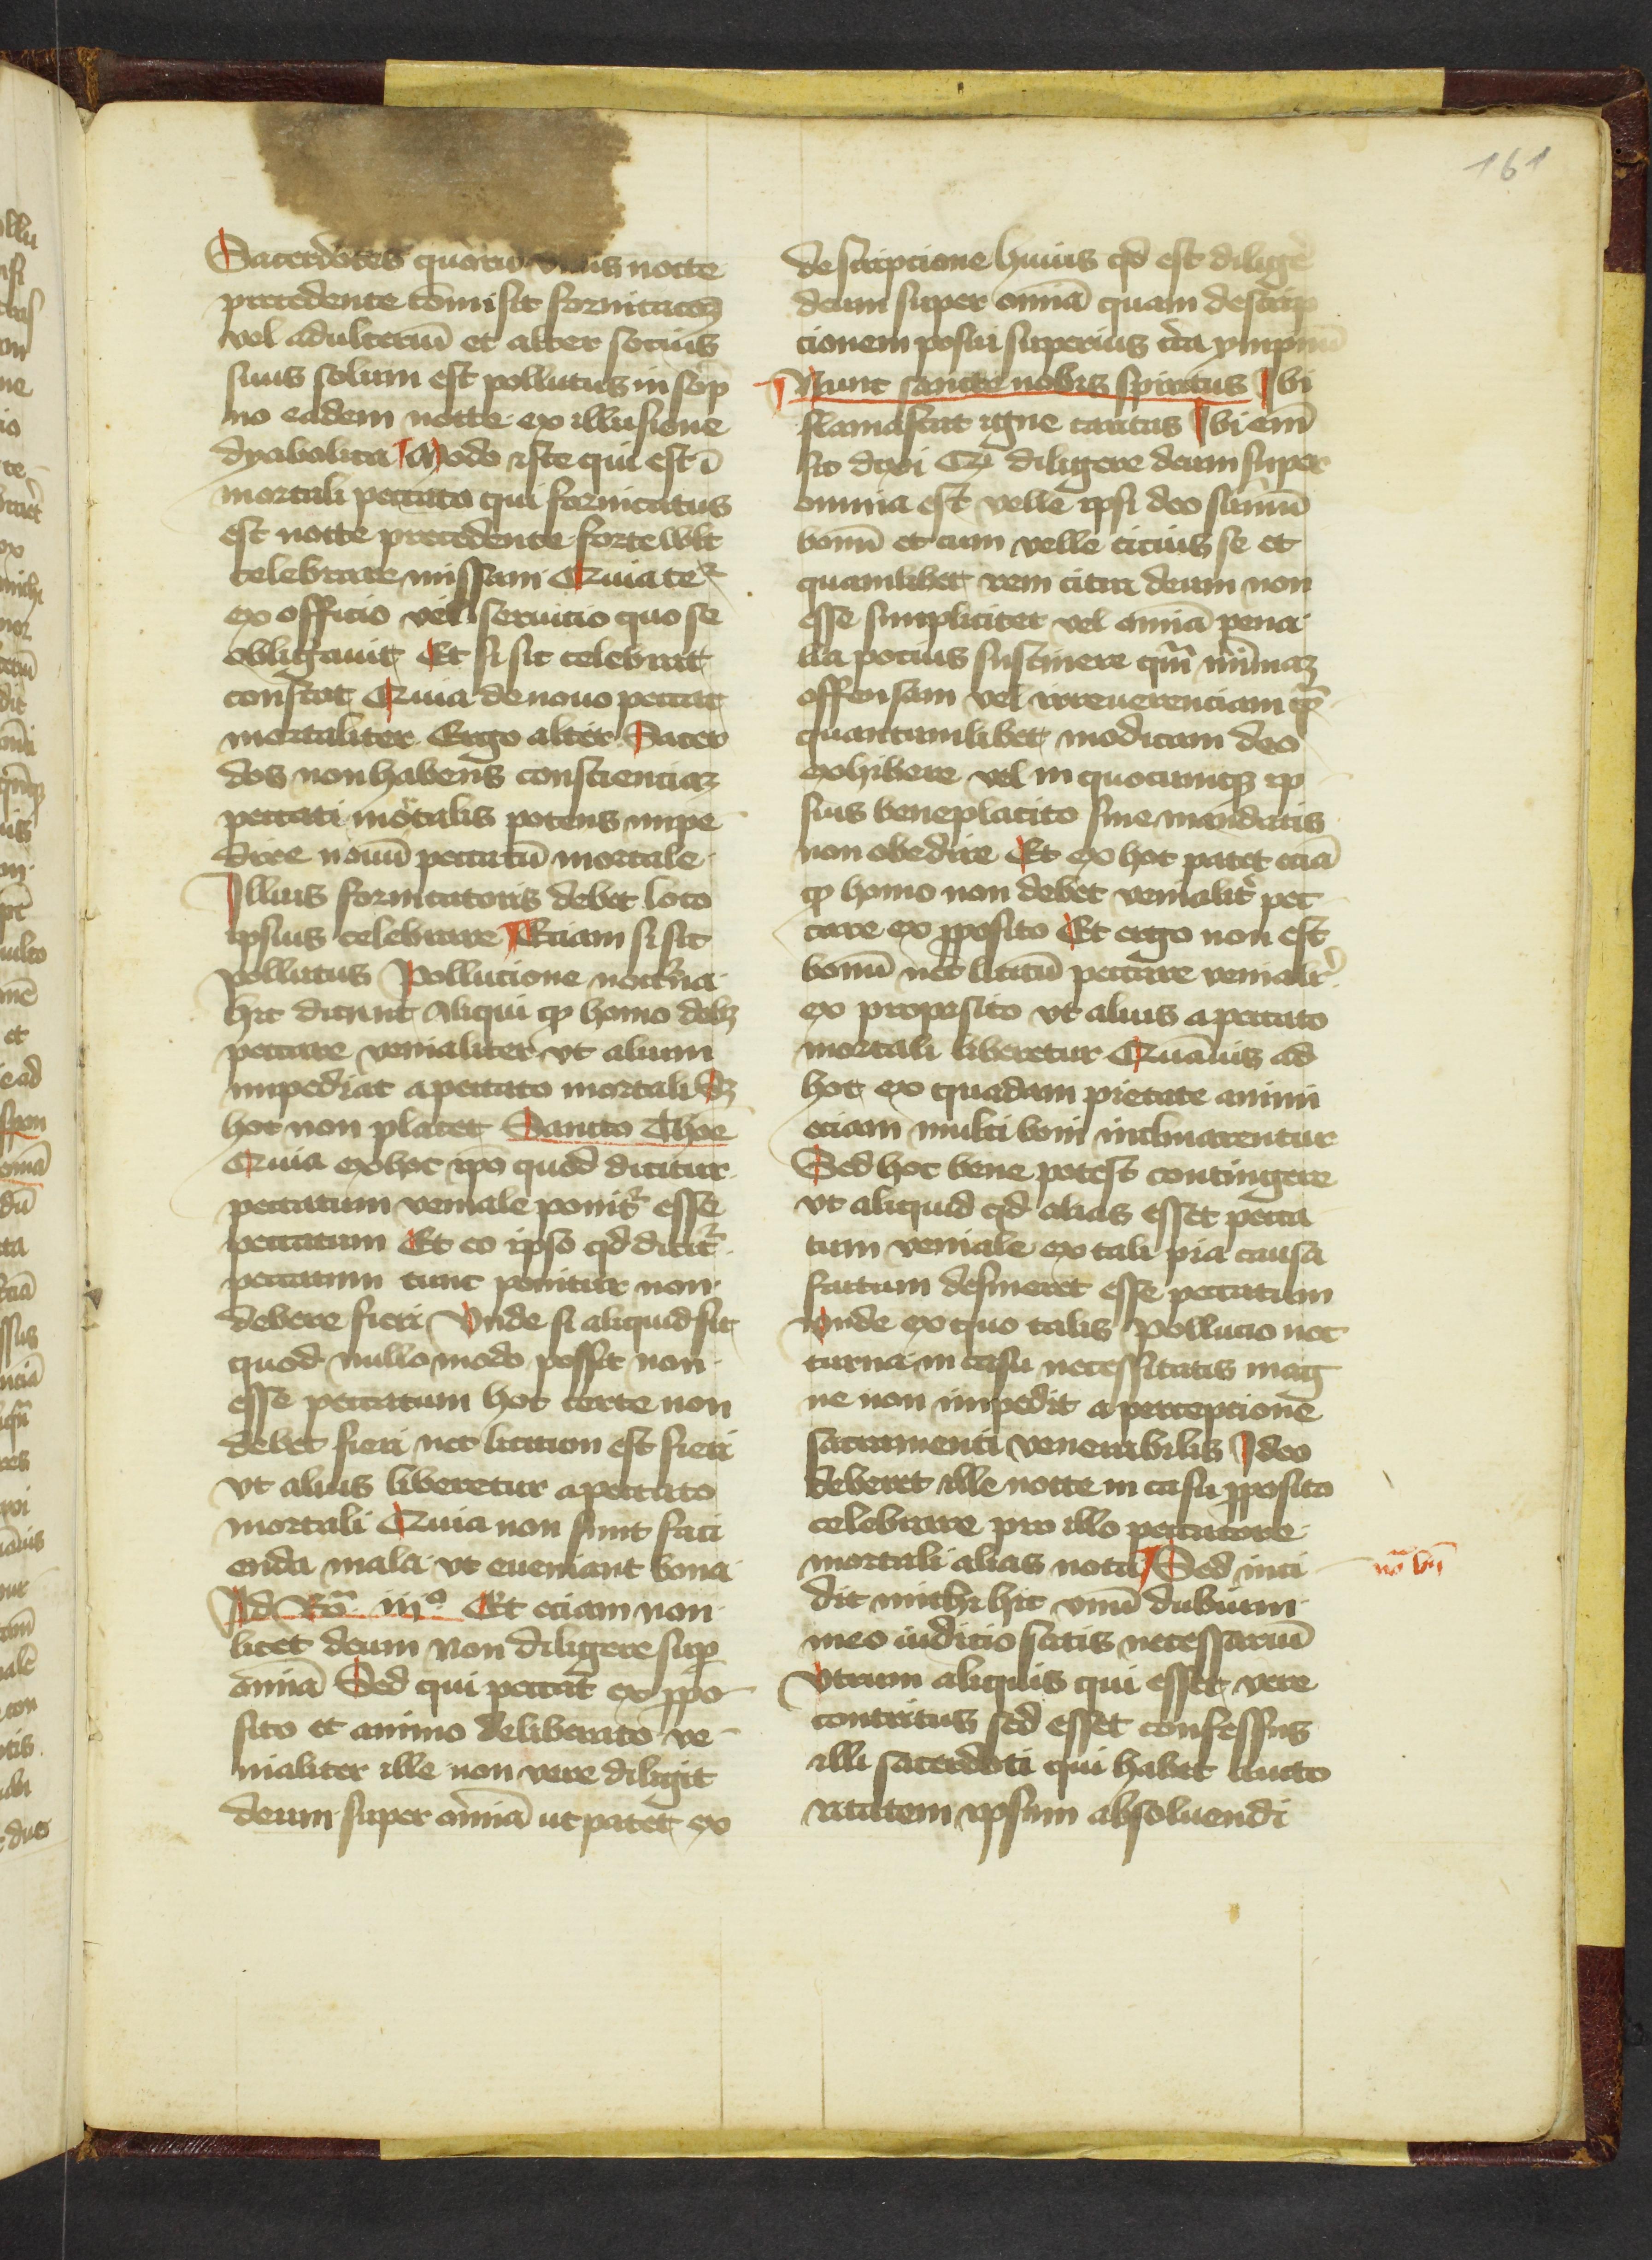 161
Sacerdotes quoru vnus nocte
precedente cōmisit fornicacōꝫ
vel adulteriū et alter socius
suus solum est pollutus in sōp
no eadem nocte ex illusione
dyabolica Modo iste qui est ī
mortali peccato qui fornicatus
est nocte precedente forte wlt
celebrare missam Quia tēꝛ
ex officio vel seruicio quo se
obligauit Et si sic celebrat
constat Quia de nouo peccat
mortaliter Ergo alter Sacer
dos non habens conscienciaꝫ
peccati mortalis potens impe
dire nouū peccatū mortale
Illius fornicatoris debet loco
ipsius celebrare Eciam si sit
pollutus Pollucione nocturna
hic dicunt Aliqui ꝙ homo debꝫ
peccare venialiter vt alium
impediat a peccato mortali Sꝫ
hoc non placet Sancto Thoe
Quia ex hoc ipo quod dicitur
peccatum veniale ponitᷣ esse
peccatum Et eo ipso qd dicitᷣ
peccatum tunc ponitur non
debere fieri Vnde si aliquid sit
quod nullo modo possit non
esse peccatum hoc certe non
debet fieri nec licitum est fieri
vt alius liberetur a peccato
mortali Quia non sunt faci
enda mala vt eueniant bona
Ad Rō iii⁰ Et eciam non
licet deum Non diligere sup̲
omīa Sed qui peccat ex ꝓpo
sito et animo deliberato ve
nialiter ille non vere diligit
deum super omīa ut patet ex
descripcione huius qd est diligē
deum super omīa quam descrip
cionem posui superius circa ympnū
Nunc sancte nobis spiritus Ibi
flamascat igne caritas Ibi em̄
sic dixi Qꝫ diligere deum super
omnia est velle ipsi deo sūmū
bonū et cum velle cicius se et
quamlibet rem citra deum non
esse simpliciter vel omīa pena
lia pocius sustinere qm̄ mīmaꝫ
offensam vel irreuerenciam
quantumlibet modicam deo
exhibere vel in quocumqꝫ ip
sius beneplacito siue mandatis
non obedire Et ex hoc patet eciā
ꝙ homo non debet venialitᷣ pec
care ex ꝓposito Et ergo non est
bonū nec licitū peccare venialitᷣ
ex proposito vt alius a peccato
mortali liberetur Quāuis ad
hoc ex quadam pietate animi
eciam multi boni inclinarentur
Sed hoc bene potest contingere
vt aliquid qd alias esset pecca
tum veniale ex tali pia causa
factum desineret esse peccatum
Vnde ex quo talis Pollucio noc
turna in casu necessitatis mag
ne non impedit a percepcione
sacramenti venerabilis Ideo
deberet ille nocte in casu ꝓposito
celebrare pro illo peccatore
mortali alias nota Sed inci
nō bn̄
dit michi hic vnū dubium
meo iudicio satis necessariū
Vtrum aliquis qui esset vere
contritus sed esset confessus
illi sacerdoti qui habet aucto
ritatem ipsum absoluendi